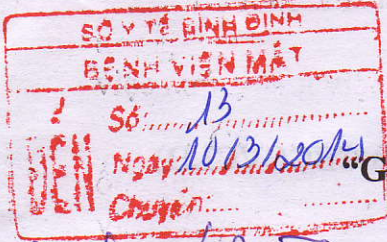 SỞ Y TẾ BÌNH ĐỊNH
BỆNH VIỆN MẮT
ĐẾN
Số: 13
Ngày: 10/3/2014
Chuyển:
“G